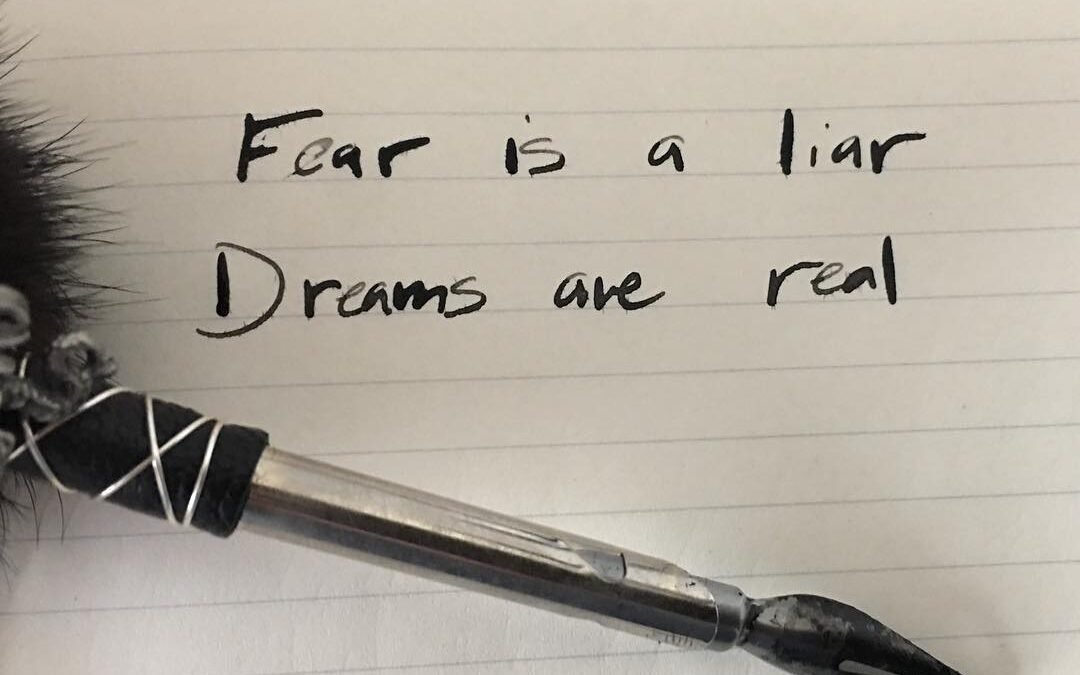 Fear is a liar
Dreams are real